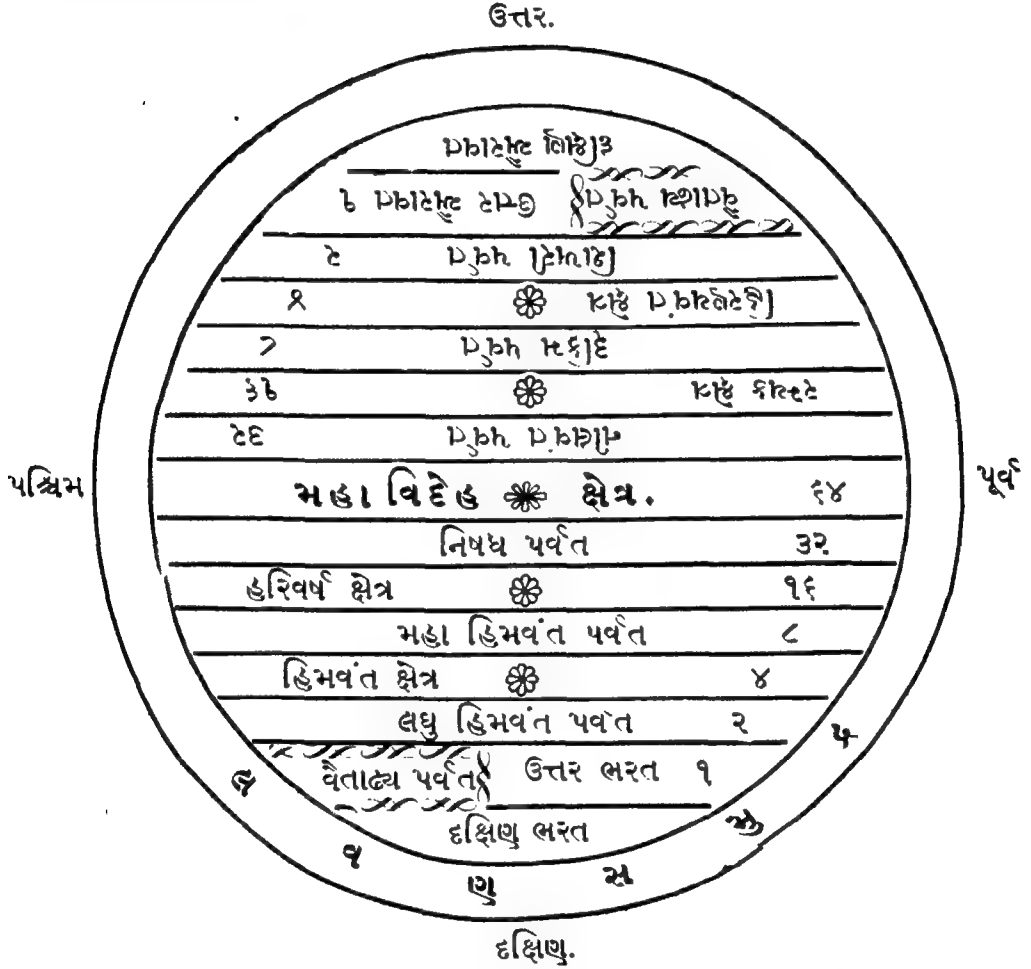 ઉત્તર.
દક્ષિણ ઐરાવત
વૈતાઢ્ય પર્વત ઉત્તર ઐરાવત ૧
શિખરી પર્વત ૨
હિરણ્યવંત ક્ષેત્ર ૪
રૂકિમ પર્વત ૮
રમ્યક ક્ષેત્ર ૧૬
નીલવંત પર્વત ૩૨
પશ્ચિમ
મહા વિદેહ ક્ષેત્ર. ૬૪
પૂર્વ
નિષધ પર્વત ૩૨
હરિવર્ષ ક્ષેત્ર ૧૬
મહા હિમવંત પર્વત ૮
હિમવંત ક્ષેત્ર ૪
લઘુ હિમવંત પર્વત ૨
વૈતાઢ્ય પર્વત ઉત્તર ભરત ૧
દક્ષિણ ભરત
લવણ સમુદ્ર
દક્ષિણ.